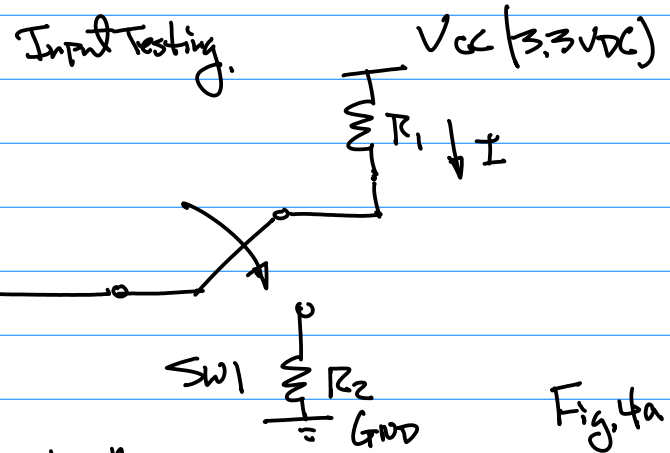 Input Testing.
Vcc (3.3VDC)
R1
I
SW1
R2
GND
Fig.4a